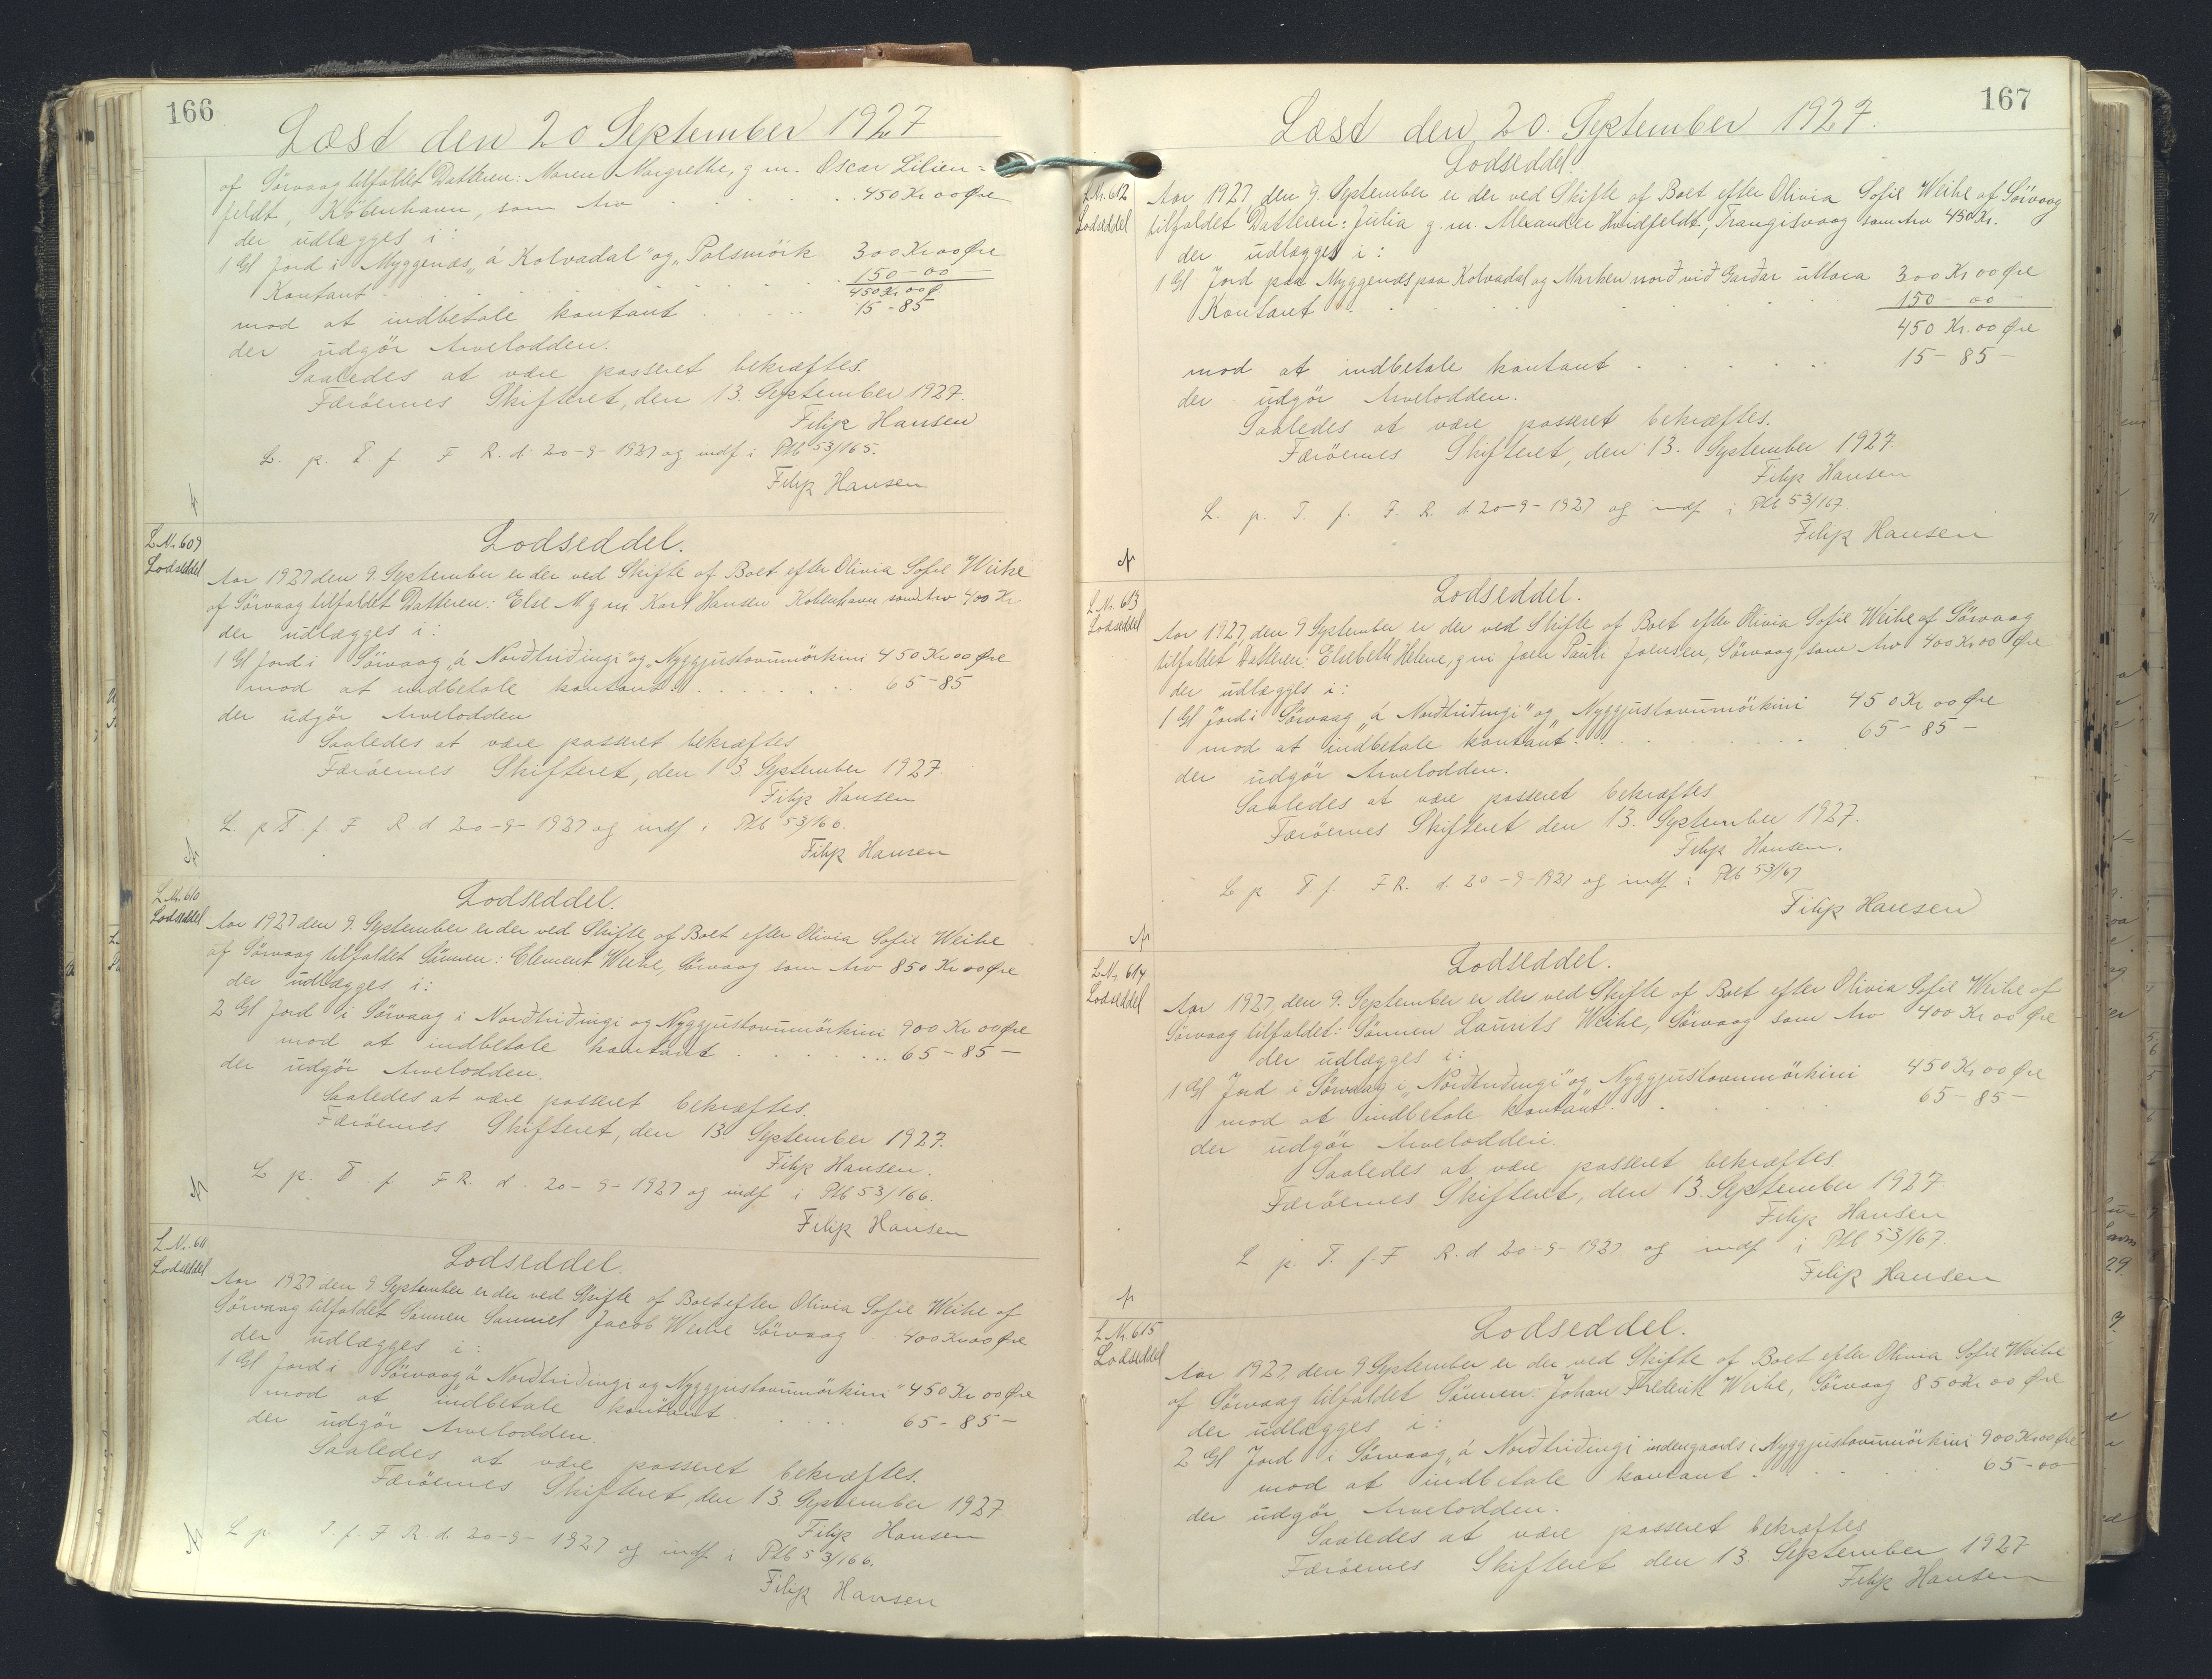 166
Læst den 20 September 1927
af Sörvaag tilfaldet Datteren: Maren Margrethe, g m. Oscar Lilien=
feldt, Köbenhavn, som Arv . . . . . 450 Kr 00 Øre
der udlægges i:
1 Gl Jord i Myggenæs „á Kolvadal" og „Palsmörk 300 Kr 00 Øre
Kontant . . . . . . . 150 - 00
450 Kr 00 Ø.
mod at indbetale kontant . . . . . 15 - 85
der udgör Arvelodden.
Saaledes at være passeret bekræftes.
Færöernes Skifteret, den 13. September 1927.
Filip Hansen
L. p. T f. F R. d. 20-9-1927 og indf i Ptb 53/165.
Filip Hansen
L Nr. 609
Lodseddel
Lodseddel.
Aar 1927 den 9. September er der ved Skifte af Boet efter Olivia Sofie Weihe
af Sörvaag tilfaldet Datteren: Else M. g m Karl Hansen Köbenhavn som Arv 400 Kr
der udlægges i:
1 Gl Jord i Sörvaag „á Norðtriðingi" og „Nyggjustovumörkini 450 Kr 00 Øre
mod at indbetale kontant . . . . . 65 - 85
der udgör Arvelodden
Saaledes at være passeret bekræftes
Færöernes Skifteret, den 13 September 1927.
Filip Hansen
L. p T. f. F R. d 20-9-1927 og indf i Ptb 53/166.
Filip Hansen
L Nr. 610
Lodseddel
Lodseddel.
Aar 1927 den 9. September er der ved Skifte af Boet efter Olivia Sofie Weihe
af Sörvaag tilfaldet Sönnen: Clement Weihe, Sörvaag som Arv 850 Kr 00 Øre
der udlægges i:
2 Gl Jord i Sörvaag i Norðtriðingi og Nyggjustovumörkini 900 Kr 00 Øre
mod at indbetale kontant . . . . . 65 - 85 -
der udgör Arvelodden.
Saaledes at være passeret bekræftes.
Færöernes Skifteret, den 13 September 1927.
Filip Hansen.
L p. T. f F R. d. 20-9-1927 og indf i Ptb 53/166.
Filip Hansen
L Nr. 611
Lodseddel
Lodseddel.
Aar 1927 den 9. September er der ved Skifte af Boet efter Olivia Sofie Weihe af
Sörvaag tilfaldet Sönnen Samuel Jacob Weihe Sörvaag . . 400 Kr 00 Øre
der udlægges i:
1 Gl Jord i Sörvaag „á Norðtriðingi og Nyggjustovumörkini" 450 Kr 00 Øre
mod at indbetale kontant . . . . . 65 - 85 -
der udgör Arvelodden.
Saaledes at være passeret bekræftes.
Færöernes Skifteret, den 13. September 1927
Filip Hansen
L p. T. f. F R. d. 20-9-1927 og indf i Ptb 53/166.
Filip Hansen
167
Læst den 20. September 1927.
L Nr. 612
Lodseddel
Lodseddel.
Aar 1927, den 9. September er der ved Skifte af Boet efter Olivia Sofie Weihe af Sörvaag
tilfaldet Datteren: Julia g. m. Alexander Hvidfeldt, Trangisvaag som Arv 450 Kr.
der udlægges i:
1 Gl Jord paa Myggenæs paa Kolvadal og Marken norð við Garðar uttara 300 Kr 00 Øre
Kontant . . . . . . . 150 - 00 -
450 Kr. 00 Øre
mod at indbetale kontant . . . . . 15 - 85 -
der udgör Arvelodden.
Saaledes at være passeret bekræftes.
Færöernes Skifteret, den 13. September 1927
Filip Hansen
L. p. T. f. F. R. d 20-9-1927 og indf i Ptb 53/167
Filip Hansen
L Nr. 613
Lodseddel
Lodseddel.
Aar 1927, den 9 September er der ved Skifte af Boet efter Olivia Sofie Weihe af Sörvaag
tilfaldet Datteren: Elsebeth Helene, g m Joen Pauli Joensen, Sörvaag, som Arv 400 Kr 00 Øre
der udlægges i:
1 Gl Jord i Sörvaag „á Norðtriðingi" og „Nyggjustovumörkini 450 Kr 00 Øre
mod at indbetale kontant . . . . . 65 - 85 -
der udgör Arvelodden.
Saaledes at være passeret bekræftes
Færöernes Skifteret den 13. September 1927.
Filip Hansen.
L p T. f. F R. d. 20-9-1927 og indf i Ptb 53/167
Filip Hansen
L Nr. 614
Lodseddel
Lodseddel.
Aar 1927, den 9. September er der ved Skifte af Boet efter Olivia Sofie Weihe af
Sörvaag tilfaldet: Sönnen Laurits Weihe, Sörvaag som Arv 400 Kr 00 Øre
der udlægges i:
1 Gl Jord i Sörvaag i „Norðtriðingi" og Nyggjustovumörkini 450 Kr 00 Øre
mod at indbetale kontant . . . . . 65 - 85 -
der udgör Arvelodden.
Saaledes at være passeret bekræftes.
Færöernes Skifteret, den 13. September 1927.
Filip Hansen
L p. T. f. F R. d 20-9-1927 og indf i Ptb 53/167.
Filip Hansen
L Nr. 615
Lodseddel
Lodseddel.
Aar 1927, den 9 September er der ved Skifte af Boet efter Olivia Sofie Weihe
af Sörvaag tilfaldet Sönnen: Johan Frederik Weihe, Sörvaag 850 Kr 00 Øre
der udlægges i:
2 Gl Jord i Sörvaag „á Norðtriðingi indengaards i Nyggjustovumörkini 900 Kr 00 Øre
mod at indbetale kontant . . . . . 65 - 00
der udgör Arvelodden.
Saaledes at være passeret bekræftes
Færöernes Skifteret den 13. September 1927
Filip Hansen